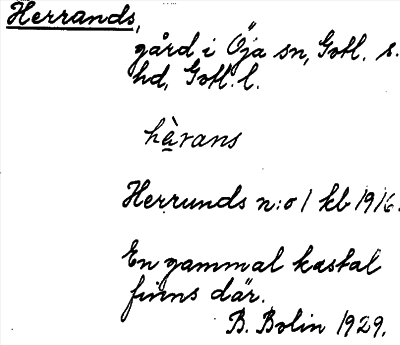 Herrands,
gård i Öja sn, Gotl. s.
hd, Gotl. l.
hèrans
Herrunds n:o 1 kb 1916.
En gammal kastal
finns där.
B. Bolin 1929.